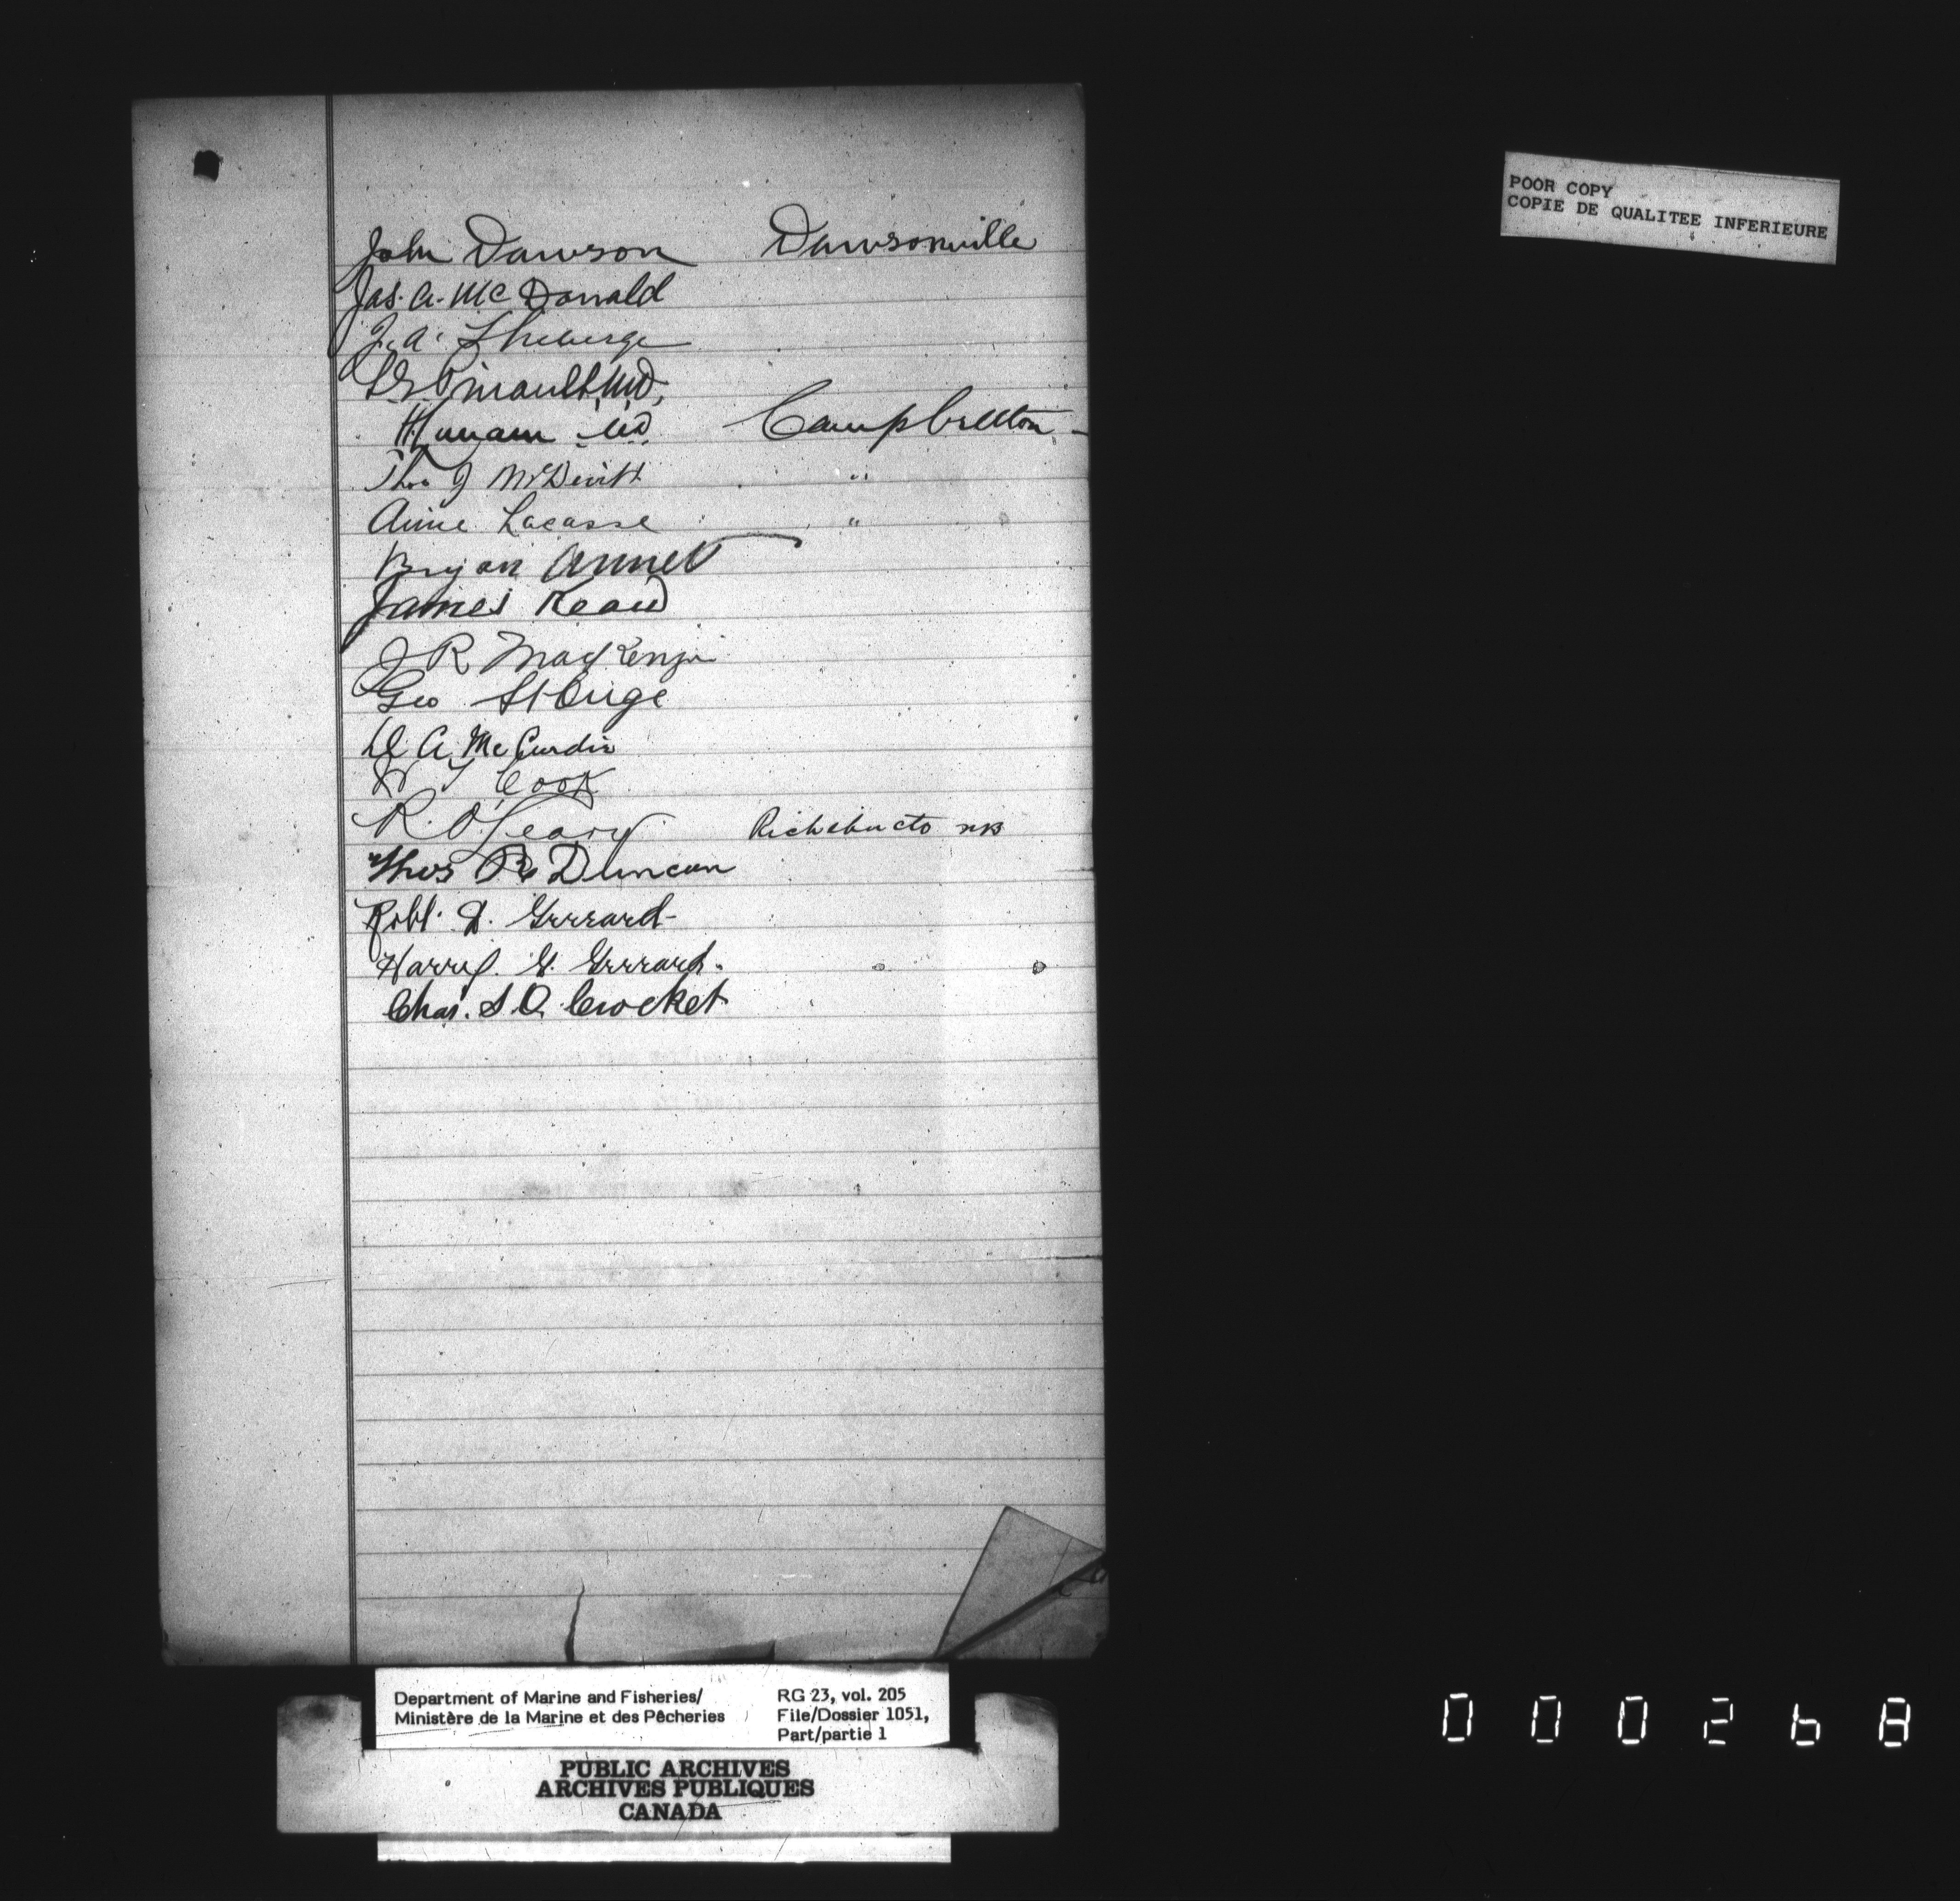 POOR COPY
COPIE DE QUALITEE INFERIEURE
John Dawson Dawsonville
Jas. A. McDonald
J. A. Theberge
Pinault, M.D,
M.D. Campbellton -
Thos J McDevitt "
Aime Lacasse "
Bryan Annet
James Read
J R MacKenzie
Geo St Onge
D A McCurdie
W T Cook
R. O'Leary Richibucto NB
Thos R Duncan
Robt. D. Gerrard-
Harry G. Gerrard.
Chas. S. O. Crocket
Department of Marine and Fisheries/ RG 23, vol. 205
Ministère de la Marine et des Pêcheries File/Dossier 1051,
Part/partie 1
PUBLIC ARCHIVES
ARCHIVES PUBLIQUES
CANADA
000268